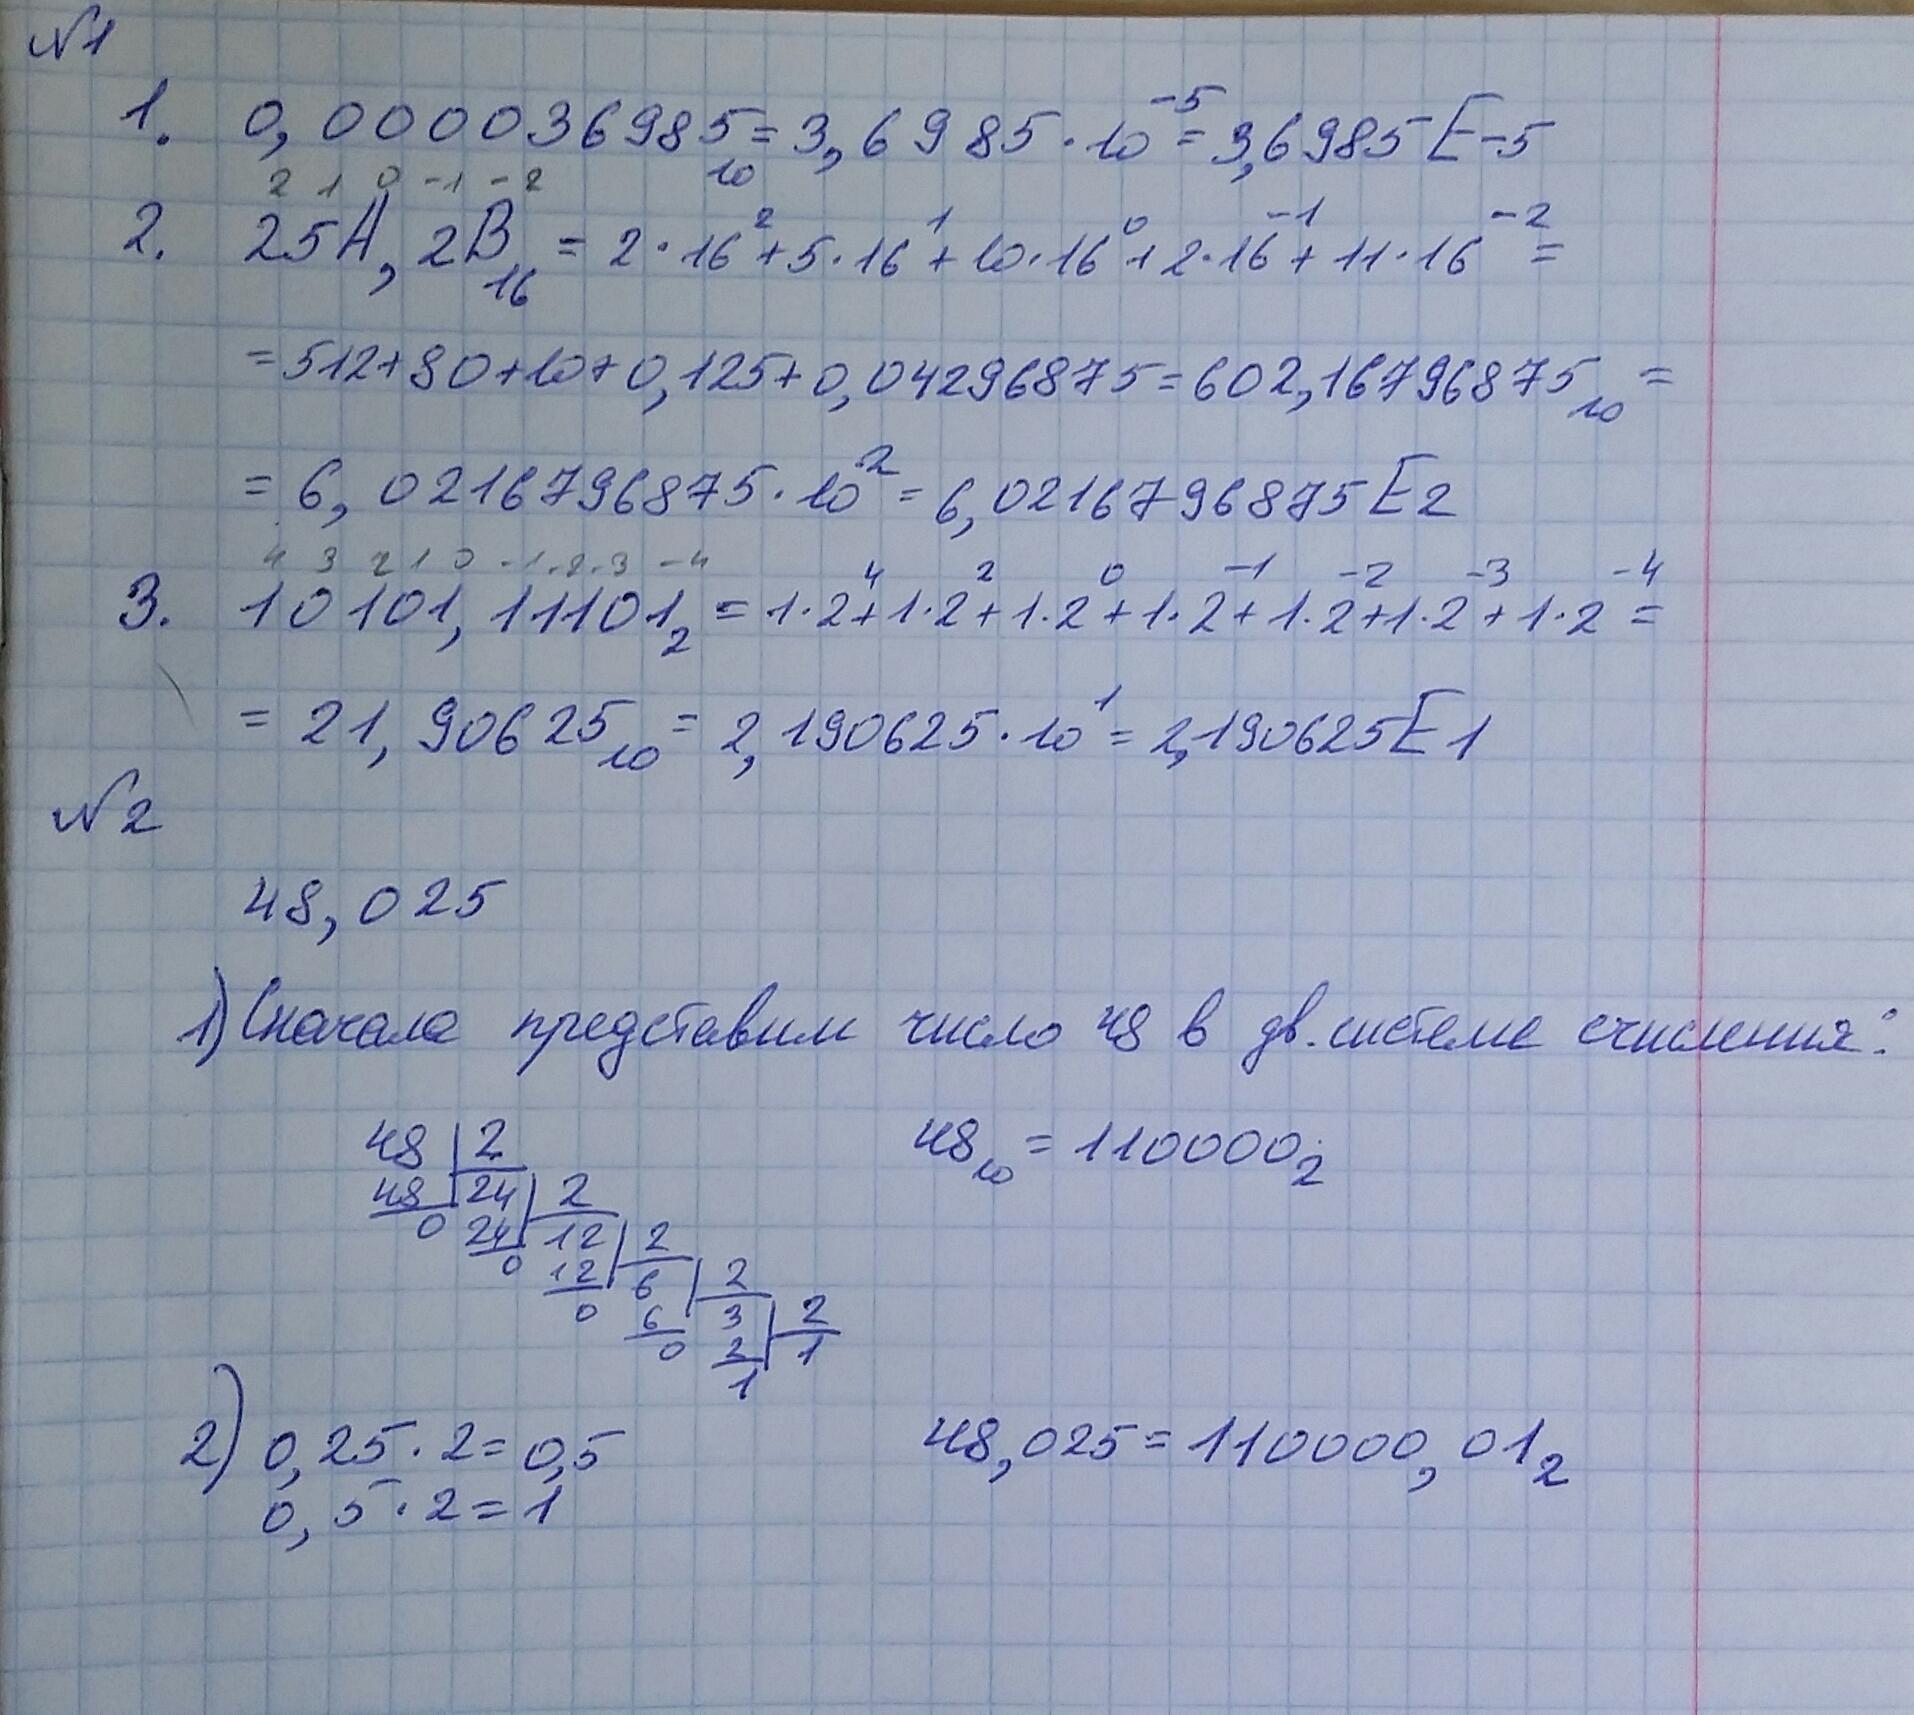 №1
1. 0,000036985₁₀ = 3,6985·10⁻⁵ = 3,6985E-5
2 1 0 -1 -2
2. 25A,2B₁₆ = 2·16² + 5·16¹ + 10·16⁰ + 2·16⁻¹ + 11·16⁻² =
= 512+80+10+0,125+0,04296875 = 602,16796875₁₀ =
= 6,0216796875·10² = 6,0216796875E2
4 3 2 1 0 -1 -2 -3 -4
3. 10101,11101₂ = 1·2⁴ + 1·2² + 1·2⁰ + 1·2⁻¹ + 1·2⁻² + 1·2⁻³ + 1·2⁻⁴ =
= 21,90625₁₀ = 2,190625·10¹ = 2,190625E1
№2
48,025
1) Сначала представим число 48 в дв. системе счисления:
48 2 48₁₀ = 110000₂
48 24 2
0 24 12 2
0 12 6 2
0 6 3 2
0 2 1
1
2) 0,25·2=0,5 48,025 = 110000,01₂
0,5·2=1